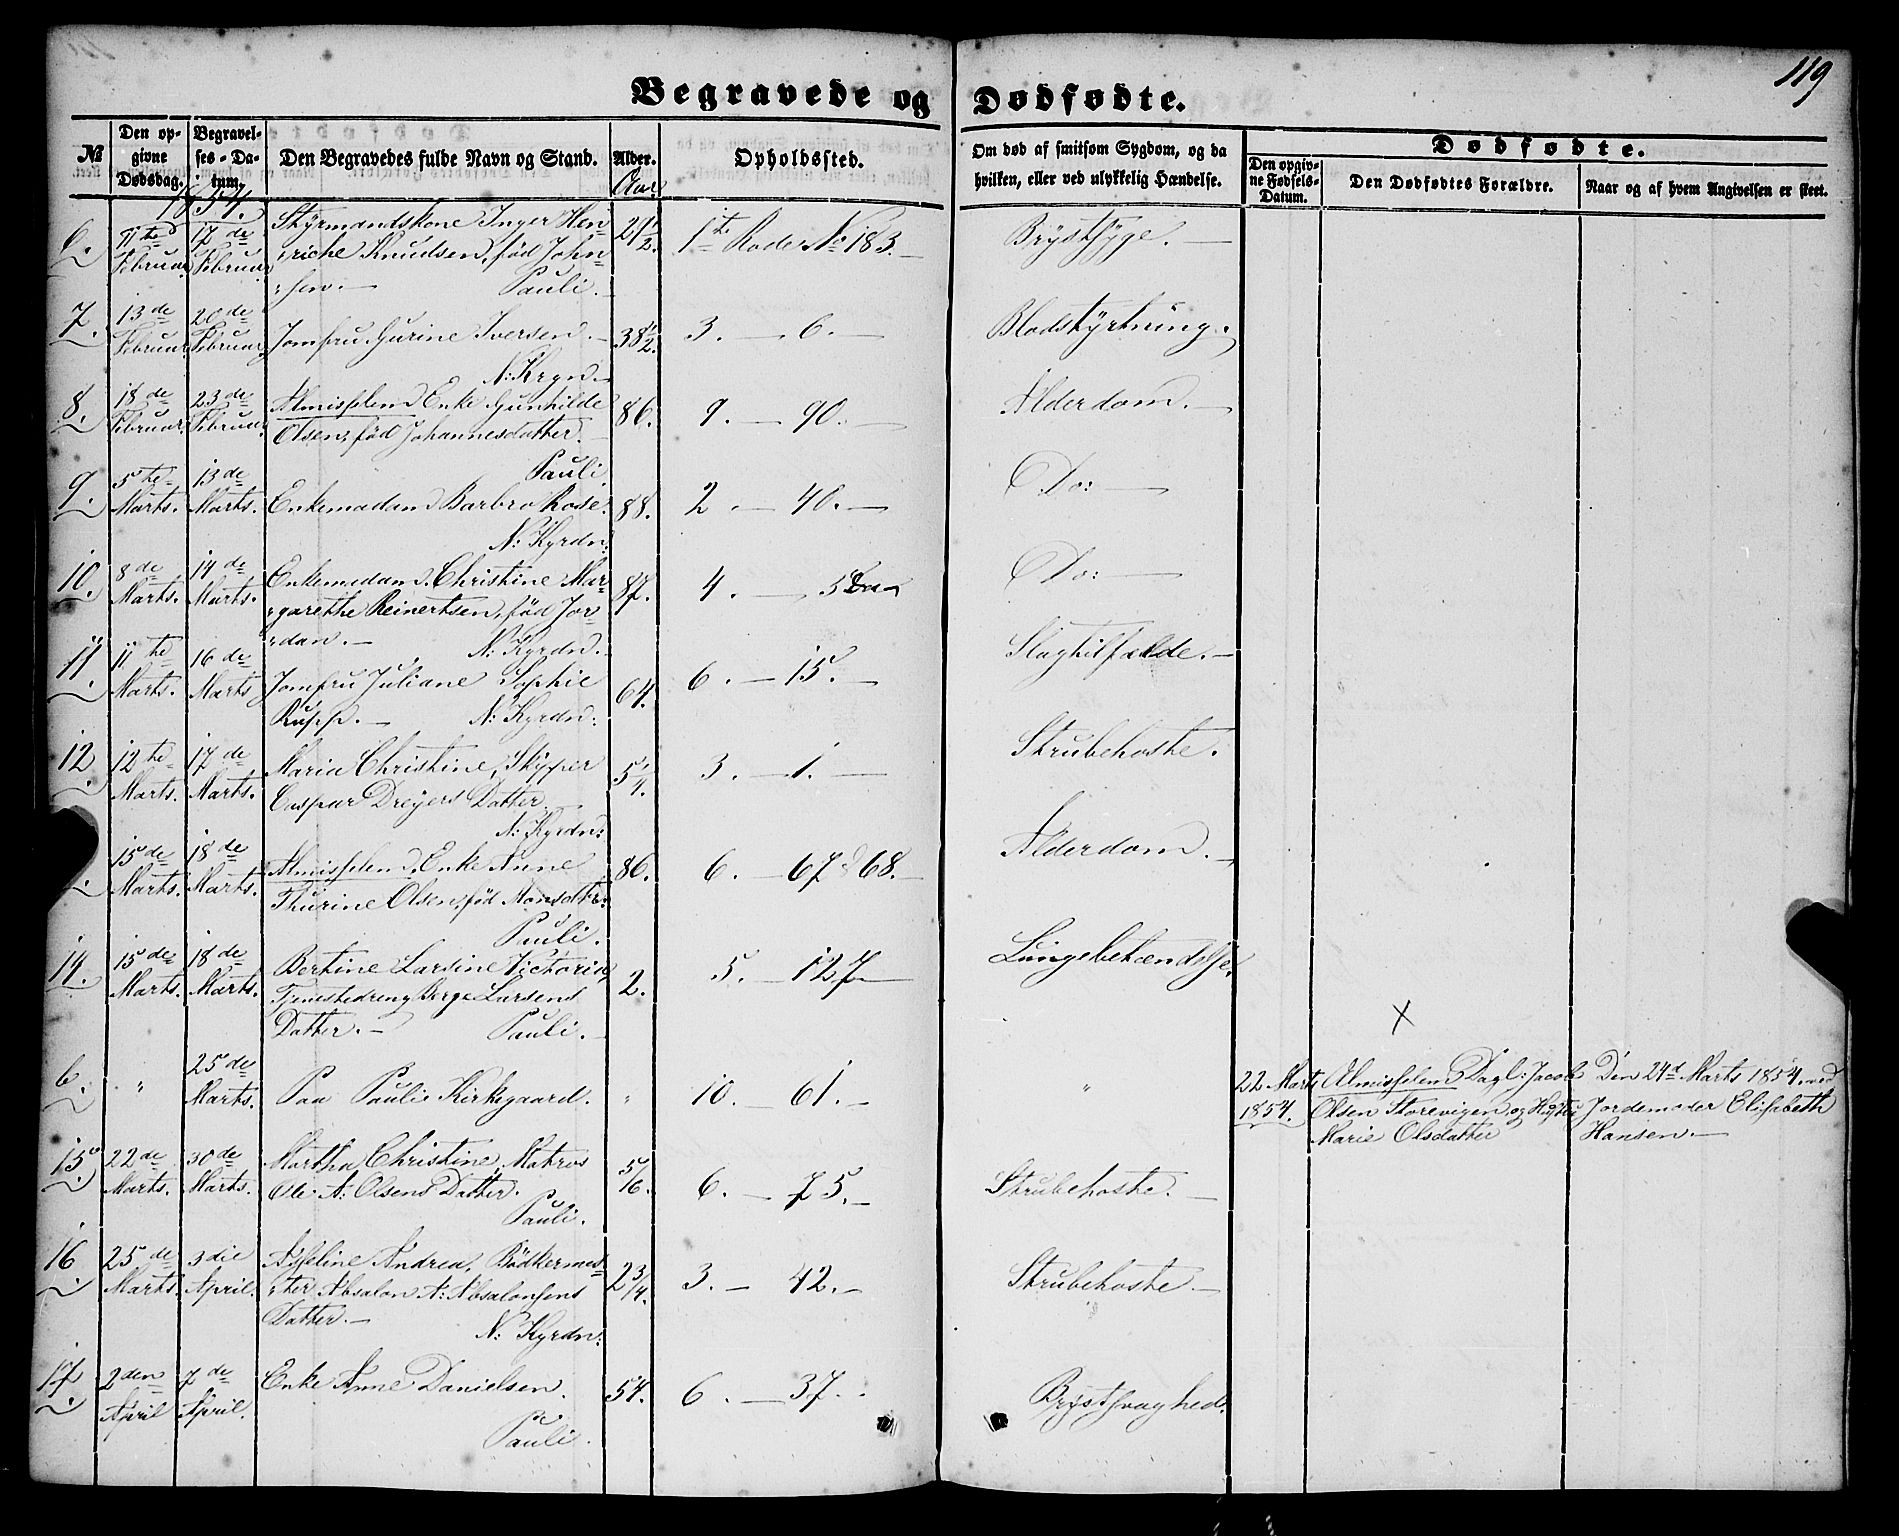 119
Begravede og Dødfødte.
№
Den op-
givne
Dødsdag.
Begravel-
ses-Da-
tum.
Den Begravedes fulde Navn og Stand.
Alder.
Aar
Opholdssted.
Om død af smitsom Sygdom, og da
hvilken, eller ved ulykkelig Hændelse.
Dødfødte.
Den opgiv-
ne Fødsels-
Datum.
Den Dødfødtes Forældre.
Naar og af hvem Angivelsen er skeet.
1854.
6. 11te Februar 17de Februar Styrmandskone Inger Hen- 29 1/2. 1te Rode No 183. Brystsyge.
riche Knudsen, fød John-
sen. Pauli.
7. 13de Februar 20de Februar Jomfru Gurine Iversen. 38 1/2. 3. — 6. Blodstyrtning.
N: Krgrd.
8. 18de Februar. 23de Februar Almisselem Enke Gunhilde 86. 9. — 90. Alderdom.
Olsen, fød Johannesdatter.
Pauli
9. 5te Marts. 13de Marts. Enkemadam Barbro Rose. 88. 2. — 40. Do:
N: Kyrdn:
10. 8de Marts. 14de Marts. Enkemadam Christine Mar- 87. 4. — Do:
garethe Reinertsen, fød Jor-
dan. N: Kyrdn.
11. 11te Marts. 16de Marts Jomfru Juliane Sophie 64. 6. — 15. Slagtilfælde.
Rupp. N: Kyrdn:
12. 12te Marts. 17de Marts. Maria Christine, Skipper 5 1/4. 3. — 1. Strubehoste.
Caspar Dreyers Datter.
N: Kyrdn:
15de Marts. 18de Marts. Almisselem, Enke Anne 86. 6. — 67 & 68. Alderdom.
Thurine Olsen, fød Monsdtr:
Pauli.
14. 15de Marts. 18de Marts. Bertine Larsine Victoria, 2. 5. — 127 Lungebetændelse.
Tjenestedreng Berge Larsens
Datter. Pauli.
X
6. " 25de Marts. Paa Pauli Kirkegaard. " 10. — 61. " 22 Marts 1854. Almisselem Dagl: Jacob Den 24d Marts 1854. ved
Olsen Storevigen og Hustru Jordemoder Elisabeth
Marie Olsdatter Hansen.
15. 22de Marts. 30de Marts. Martha Christine, Matros 5/6. 6. — 75. Strubehoste.
Ole A: Olsens Datter.
Pauli.
16 25de Marts. 3die April. Asseline Andrea, Bødkermes- 2 3/4. 3. — 42. Strubehoste.
ter Absalon A: Absalonsens
Datter. N: Kyrdn:
17. 2den April 7de April. Enke Anne Danielsen. 54. 6. — 37. Brystsvaghed.
Pauli.